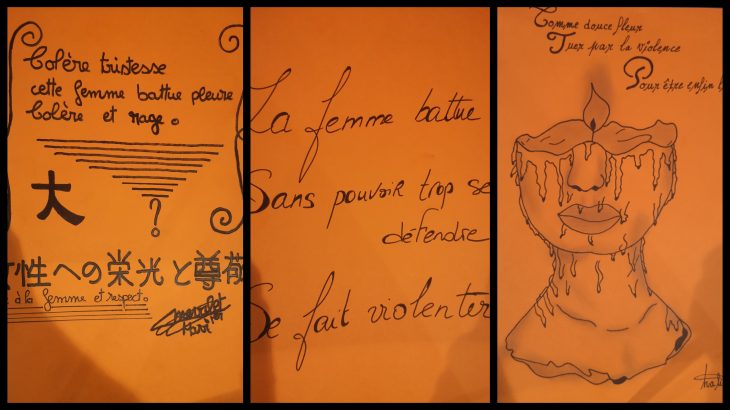 Colère tristesse
cette femme battue pleure
Colère et rage.
大
?
女性への栄光と尊敬
à la femme et respect.
La femme battue
Sans pouvoir trop se
défendre
Se fait violenter
Comme douce fleur
Tuer par la violence
Pour être enfin